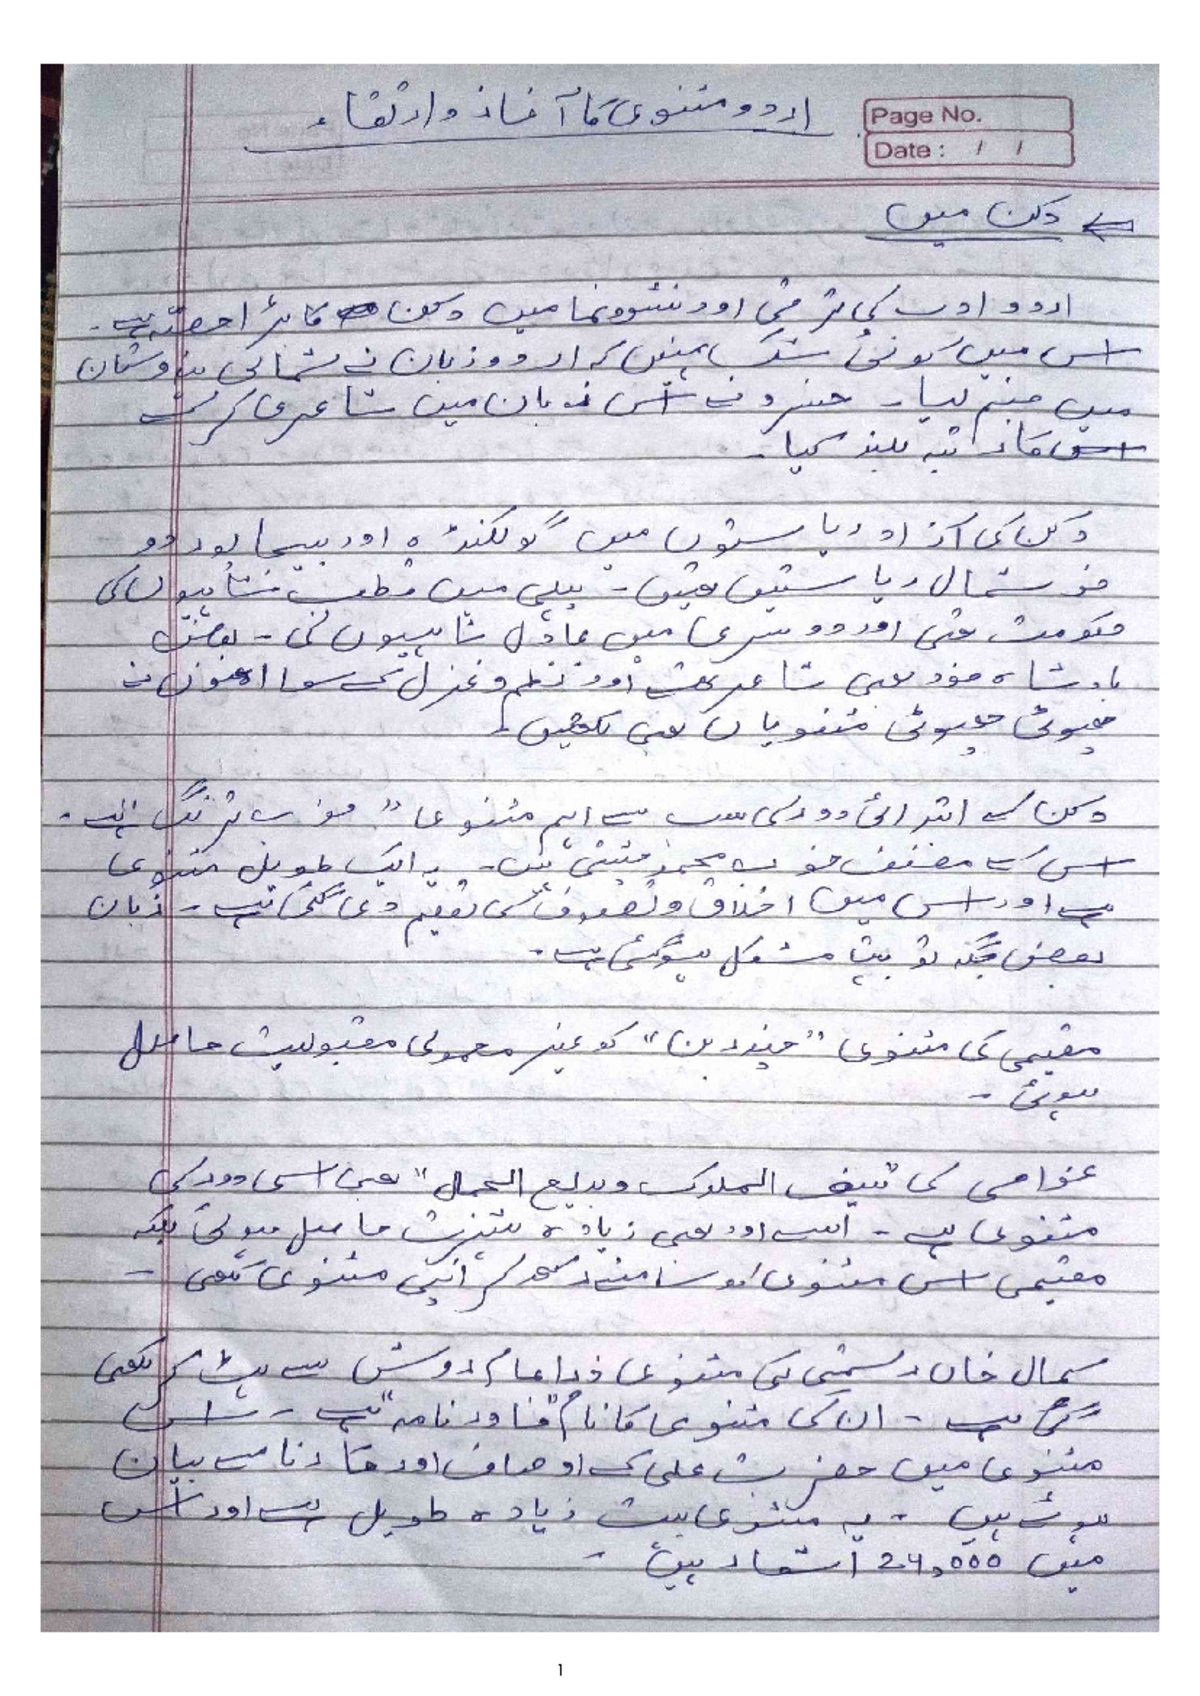 اردو مثنوی کا آغاز و ارتقاء
Page No.
Date : / /
⇐ دکن میں
اردو ادب کی ترقی اور نشوونما میں دکن کا بڑا حصہ ہے۔
اس میں کوئی شک نہیں کہ اردو زبان نے شمالی ہندوستان
میں جنم لیا۔ خسرو نے اس زبان میں شاعری کرکے
اس کا رتبہ بلند کیا۔
دکن کی آزاد ریاستوں میں گولکنڈہ اور بیجاپور دو
خوشحال ریاستیں تھیں۔ پہلی میں قطب شاہیوں کی
حکومت تھی اور دوسری میں عادل شاہیوں کی۔ بعض
بادشاہ خود بھی شاعر تھے اور نظم و غزل کے سوا انھوں نے
چھوٹی چھوٹی مثنویاں بھی لکھیں۔
دکن کے ابتدائی دور کی سب سے اہم مثنوی "خوب ترنگ" ہے۔
اس کے مصنف خوب محمد چشتی ہیں۔ یہ ایک طویل مثنوی
ہے اور اس میں اخلاق و تصوف کی تعلیم دی گئی ہے۔ زبان
بعض جگہ تو بہت مشکل ہوگئی ہے۔
مقیمی کی مثنوی "چندر بدن" کو غیر معمولی مقبولیت حاصل
ہوئی۔
غواصی کی "سیف الملوک و بدیع الجمال" بھی اسی دور کی
مثنوی ہے۔ اسے اور بھی زیادہ شہرت حاصل ہوئی بلکہ
مقیمی اس مثنوی کو سامنے رکھ کر اپنی مثنوی لکھی۔
کمال خاں رستمی کی مثنوی ذرا عام روش سے ہٹ کر لکھی
گئی ہے۔ ان کی مثنوی کا نام "خاور نامہ" ہے۔ اس
مثنوی میں حضرت علی کے اوصاف اور کارنامے بیان
ہوئے ہیں۔ یہ مثنوی بہت زیادہ طویل ہے اور اس
میں 24,000 اشعار ہیں۔
1